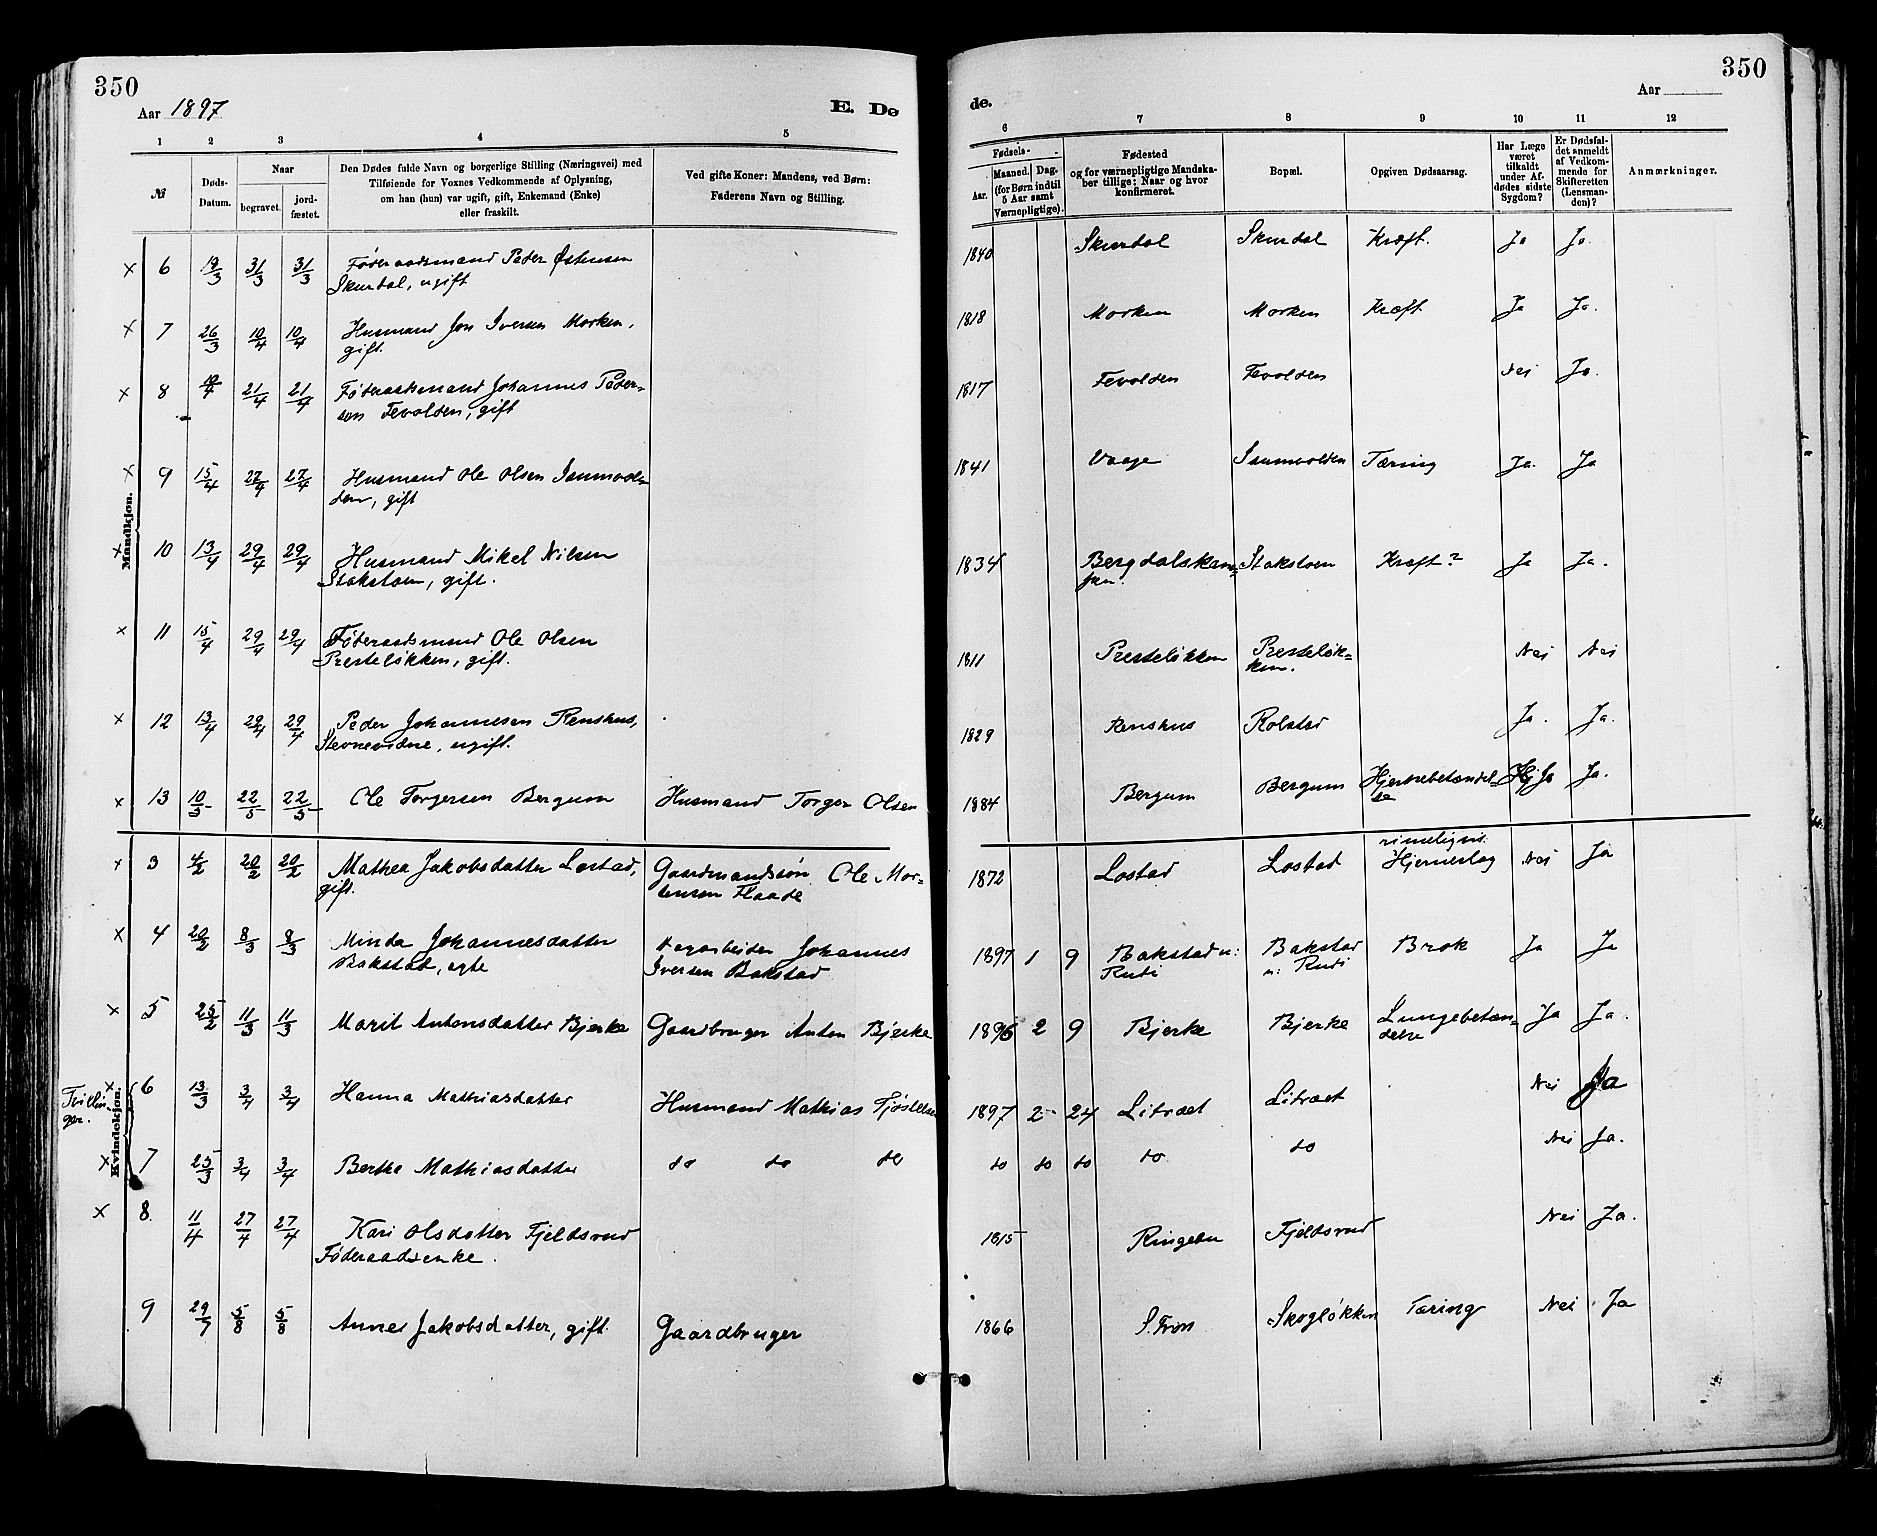 350
350
Aar 1897
E. Dø
de.
Aar
1 2 3 4 5 6 7 8 9 10 11 12
№
Døds-Datum.
Naar
begravet.
jord-fæstet.
Den Dødes fulde Navn og borgerlige Stilling (Næringsvei) med
Tilføiende for Voxnes Vedkommende af Oplysning,
om han (hun) var ugift, gift, Enkemand (Enke)
eller fraskilt.
Ved gifte Koner: Mandens, ved Børn:
Faderens Navn og Stilling.
Fødsels-
Aar.
Maaned. Dag.
(for Børn indtil
5 Aar samt
Værnepligtige).
Fødested
og for værnepligtige Mandska-
ber tillige: Naar og hvor
konfirmeret.
Bopæl.
Opgiven Dødsaarsag.
Har Læge
været
tilkaldt
under Af-
dødes sidste
Sygdom?
Er Dødsfal-
det anmeldt
af Vedkom-
mende for
Skifteretten
(Lensman-
den)?
Anmærkninger.
Mandkjøn.
x 6 19/3 31/3 31/3 Føderaadsmand Peder Østensen 1840 Skurdal Skurdal Kræft. Ja Ja.
Skurdal, ugift
x 7 26/3 10/4 10/4 Husmand Jon Iversen Morken, 1818 Morken Morken Kræft Ja Ja.
gift.
x 8 10/4 21/4 21/4 Føderaadsmand Johannes Peder= 1817 Fevolden Fevolden Nei Ja.
sen Fevolden, gift
x 9 15/4 27/4 27/4 Husmand Ole Olsen 1841 Vaage Tæring Ja. Ja
den, gift
x 10 13/4 29/4 29/4 Husmand Mikel Nilsen 1834 Bergdalskam= Stakstoen Kræft? Ja Ja.
Stakstoen, gift.
x 11 15/4 29/4 29/4 Føderaadsmand Ole Olsen 1811 Presteløkken Presteløk= Nei Nei
Presteløkken, gift. ken.
x 12 13/4 29/4 29/4 Peder Johannesen Renshus, 1829 Renshus Rolstad Ja. Ja.
Stevnevidne, ugift.
x 13 10/5 22/5 22/5 Ole Torgersen Bergum Husmand Torger Olsen 1884 Bergum Bergum Hjertebetændel= Ja Ja.
se
Kvindekjøn.
rimeligvis
x 3 4/2 20/2 20/2 Mathea Jakobsdatter Lostad, Gaardmandssøn Ole Mor= 1872 Lostad Lostad Hjerneslag Nei Ja
gift. tensen Flaade
x 4 20/2 8/3 8/3 Minda Johannesdatter Dagarbeider Johannes 1897 1 9 Bakstad u: Bakstad Brok Ja Ja
Bakstad, ægte Iversen Bakstad Rudi u: Rudi
x 5 25/2 11/3 11/3 Marit Antonsdatter Bjerke Gaardbruger Anton Bjerke 1896 2 9 Bjerke Bjerke Lungebetæn= Ja Ja.
delse
Tvillin
ger.
x 6 13/3 3/4 3/4 Hanna Mathiasdatter Husmand Mathias 1897 2 24 Litræet Litræet Nei Ja
x 7 25/3 3/4 3/4 Berthe Mathiasdatter do do do do do do do do Nei Ja.
x 8 11/4 27/4 27/4 Kari Olsdatter Fjeldsrud 1815 Ringebu Fjeldsrud Nei Ja.
Føderaadsenke.
9 29/7 5/8 5/8 Anne Jakobsdatter, gift Gaardbruger 1866 S. Fron Skogløkken Tæring Nei Ja